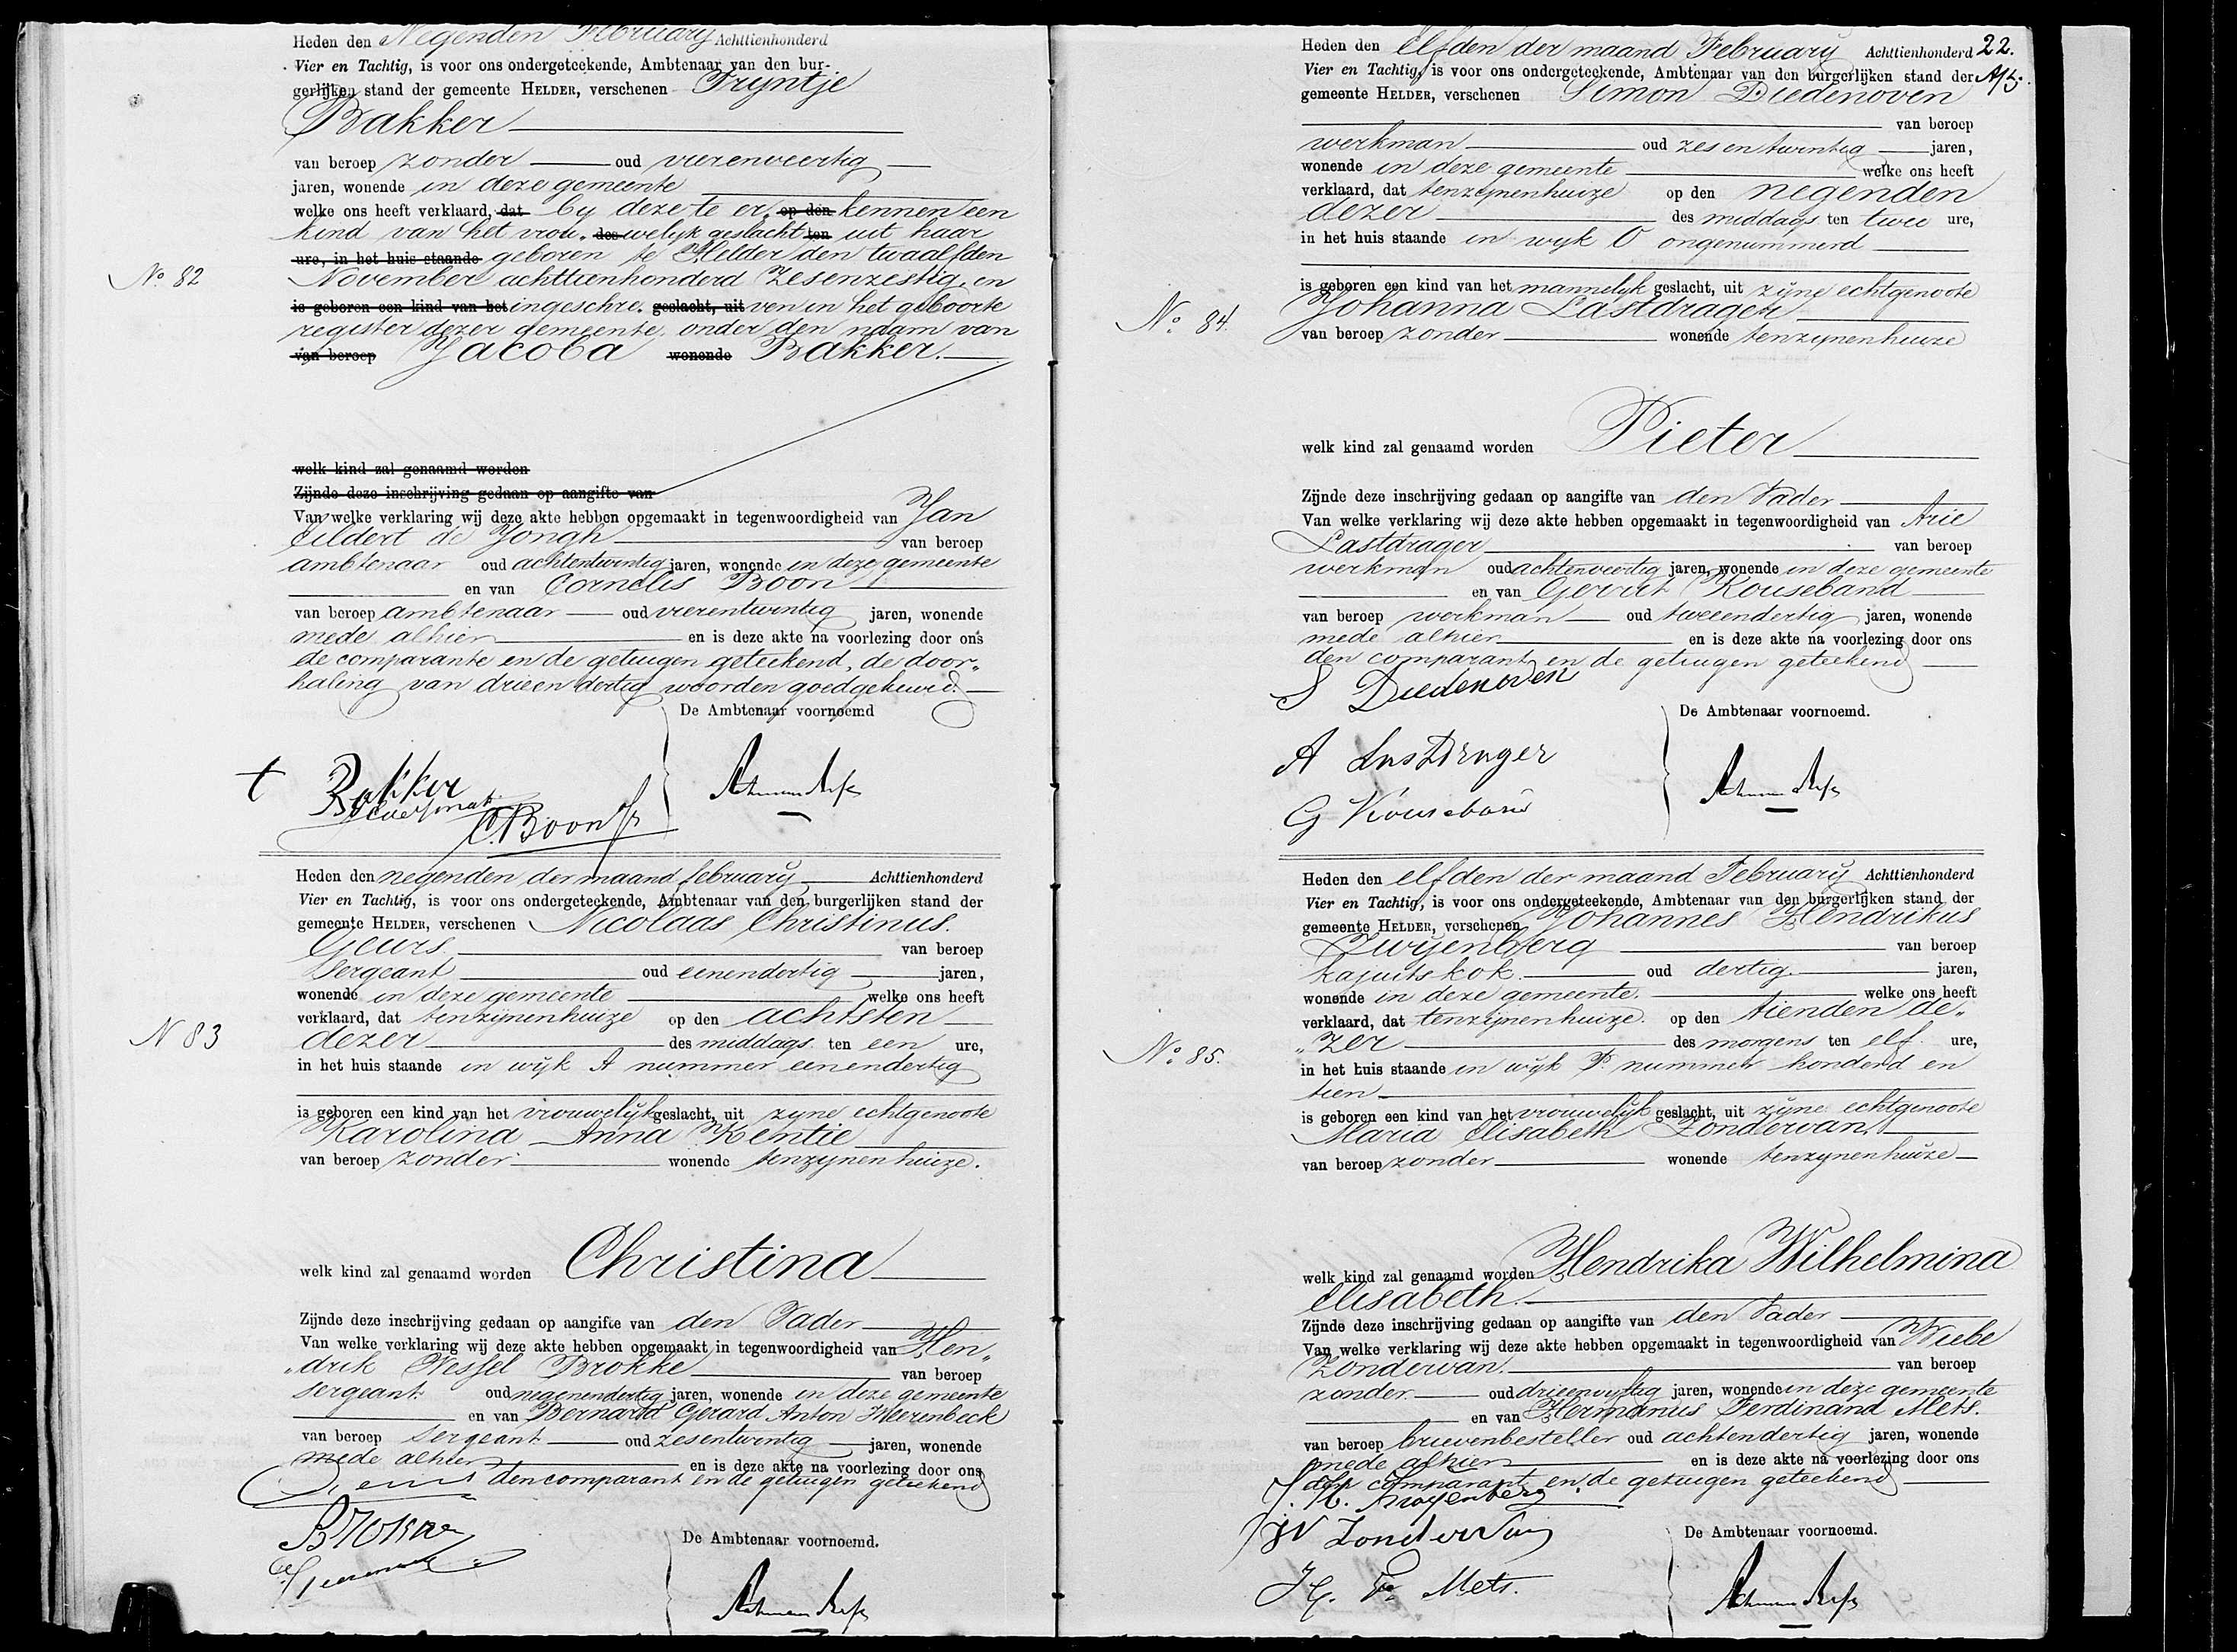 Heden den Negenden February Achttienhonderd
Vier en Tachtig, is voor ons ondergeteekende, Ambtenaar van den bur-
gerlijken stand der gemeente HELDER, verschenen Tryntje
Bakker
van beroep zonder oud vierenveertig
jaren, wonende in deze gemeente
welke ons heeft verklaard, dat by deze te er„ op den kennen een
kind van het vrou„ des welyk geslacht ten uit haar
ure, in het huis staande geboren te Helder den twaalfden
No 82
November achttienhonderd Zesenzestig, en
is geboren een kind van het ingeschre„ geslacht, uit ven in het geboorte
register dezer gemeente, onder den naam van
van beroep Jacoba wonende Bakker.
welk kind zal genaamd worden
Zijnde deze inschrijving gedaan op aangifte van
Van welke verklaring wij deze akte hebben opgemaakt in tegenwoordigheid van Jan
Eildert de Jongh van beroep
ambtenaar oud achtentwintig jaren, wonende in deze gemeente
en van Cornelis Boon
van beroep ambtenaar oud vierentwintig jaren, wonende
mede alhier en is deze akte na voorlezing door ons
de comparante en de getuigen geteekend, de door„
haling van drieendertig woorden goedgekeurd.
De Ambtenaar voornoemd
t Bakker
C. Boon Jr
Heden den negenden der maand february Achttienhonderd
Vier en Tachtig, is voor ons ondergeteekende, Ambtenaar van den burgerlijken stand der
gemeente HELDER, verschenen Nicolaas Christinus
Geurs van beroep
Sergeant oud eenendertig jaren,
wonende in deze gemeente welke ons heeft
verklaard, dat tenzynenhuize op den achtsten
N 83
dezer des middags ten een ure,
in het huis staande in wyk A nummer eenendertig
is geboren een kind van het vrouwelyk geslacht, uit zyne echtgenoote
Karolina Anna Kentie
van beroep zonder wonende tenzynenhuize.
welk kind zal genaamd worden Christina
Zijnde deze inschrijving gedaan op aangifte van den Vader
Van welke verklaring wij deze akte hebben opgemaakt in tegenwoordigheid van Hen„
„drik Wessel Brokke van beroep
sergeant oud negenendertig jaren, wonende in deze gemeente
en van Bernard Gerard Anton Heerenbeck
van beroep Sergeant oud zesentwintig jaren, wonende
mede alhier en is deze akte na voorlezing door ons
den comparant en de getuigen geteekend
De Ambtenaar voornoemd.
22.
Heden den elfden der maand February Achttienhonderd
Vier en Tachtig, is voor ons ondergeteekende, Ambtenaar van den burgerlijken stand der
gemeente HELDER, verschenen Simon Diedenoven
van beroep
werkman oud zesentwintig jaren,
wonende in deze gemeente welke ons heeft
verklaard, dat tenzynenhuize op den negenden
dezer des middags ten twee ure,
in het huis staande in wyk O ongenummerd
is geboren een kind van het mannelyk geslacht, uit zyne echtgenoote
No. 84.
Johanna Lastdrager
van beroep zonder wonende tenzynenhuize
welk kind zal genaamd worden Pieter
Zijnde deze inschrijving gedaan op aangifte van den Vader
Van welke verklaring wij deze akte hebben opgemaakt in tegenwoordigheid van Arie
Lastdrager van beroep
werkman oud achtenveertig jaren, wonende in deze gemeente
en van Gerrit Kouseband
van beroep werkman oud tweeendertig jaren, wonende
mede alhier en is deze akte na voorlezing door ons
den comparant en de getuigen geteekend
S Diedenoven
De Ambtenaar voornoemd.
A Lastdrager
G Kouseband
Heden den elfden der maand February Achttienhonderd
Vier en Tachtig, is voor ons ondergeteekende, Ambtenaar van den burgerlijken stand der
gemeente HELDER, verschenen Johannes Hendrikus
Zwyenberg van beroep
kajuitskok oud dertig jaren,
wonende in deze gemeente. welke ons heeft
verklaard, dat tenzynenhuize. op den tienden de„
„zer des morgens ten elf ure,
No. 85.
in het huis staande in wyk P. nummer honderd en
tien
is geboren een kind van het vrouwelyk geslacht, uit zyne echtgenoote
Maria Elisabeth Zondervan
van beroep zonder wonende tenzynenhuize
welk kind zal genaamd worden Hendrika Wilhelmina
Elisabeth.
Zijnde deze inschrijving gedaan op aangifte van den Vader
Van welke verklaring wij deze akte hebben opgemaakt in tegenwoordigheid van Wiebe
Zondervan. van beroep
zonder oud drieenvyftig jaren, wonende in deze gemeente
en van Hermanus Ferdinand Mets.
van beroep brievenbesteller oud achtendertig jaren, wonende
mede alhier en is deze akte na voorlezing door ons
den comparant en de getuigen geteekend
J. H. Zwyenberg
W Zondervan
De Ambtenaar voornoemd.
H. F. Mets.